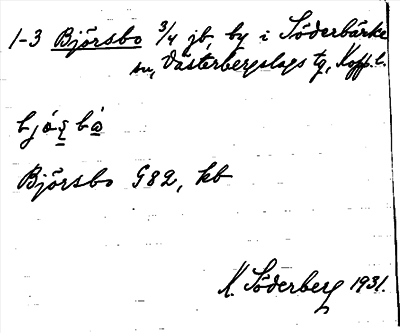 1-3 Björsbo 3/4 jb, by i Söderbärke
sn, Västerbergslags tg, Kopp. l.
Björsbo G82, kb
K. Söderberg 1931.